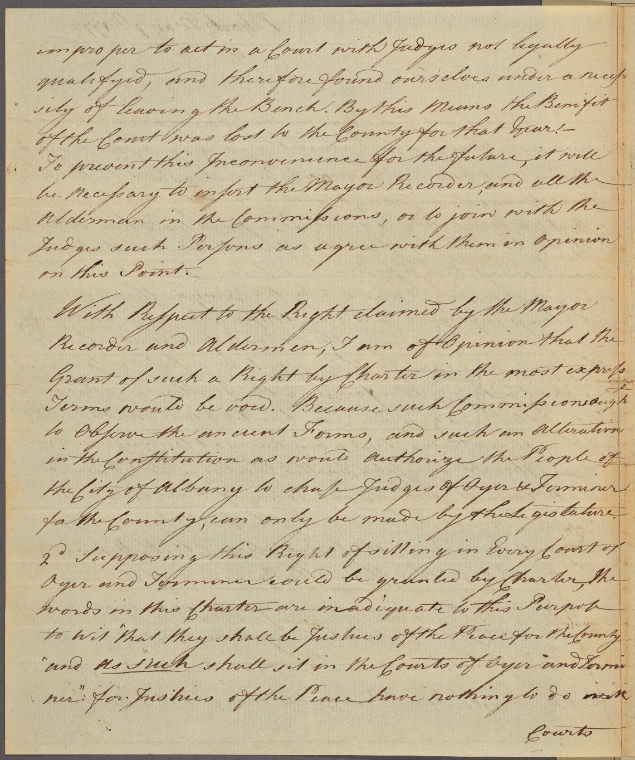 improper to act in a Court with Judges not legally
qualifyed, and therefore found ourselves under a necef-
sity of leaving the Bench. By this Means the Benifit
of the Court was lost to the County for that Year.—
To prevent this Inconvenience for the future, it will
be necefsary to insert the Mayor Recorder and all the
Alderman in the Commifsions, or to join with the
Judges such Persons as agree with them in opinion
on this Point.
With Respect to the Right claimed by the Mayor
Recorder and Aldermen, I am of Opinion that the
Grant of such a Right by Charter in the most exprefs
Terms would be void. Because such Commifsions ought
to Observe the ancient Forms, and such an Alteration
in the Constitution as would Authorize the People of
the City of Albany to chuse Judges of Oyer & Terminer
for the County, can only be made by the Legislature.
2d Supposing this Right of sitting in Every Court of
Oyer and Terminer could be granted by Charter, the
words in this Charter are inadiquate to this Purpose
to Wit "that they shall be Justices of the Peace for the County
"and as such shall sit in the Courts of Oyer and Termi
ner" for Justices of the Peace have nothing to do with
Courts